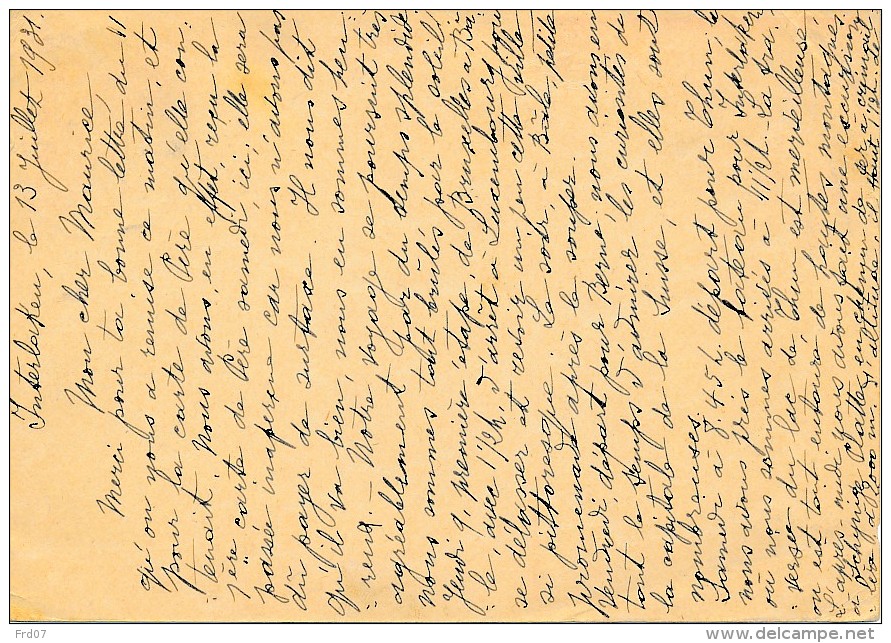 Interlaken, le 13 Juillet 1931.
Mon cher Maurice
Merci pour ta bonne lettre du 11
qu'on nous a remise ce matin, et
pour la carte de Père qu'elle con-
tenait. Nous avons, en effet, reçu la
1ère carte de Père samedi ici, elle sera
passée inaperçue car nous n'avons pas
dû payer de surtaxe. Il nous dit
qu'il va bien, nous en sommes heu-
reux. - Notre voyage se poursuit très
agréablement par du temps splendide
nous sommes tout brûlés par le soleil.
Jeudi 9, première étape, de Bruxelles à Bâ-
le, avec 1 1/2 h. d'arrêt à Luxembourg pour
se délasser et revoir un peu cette ville
si pittoresque. Le soir à Bâle, petite
promenade après le souper.
Vendredi départ pour Berne, nous avons eu
tout le temps d'admirer les curiosités de
la capitale de la Suisse, et elles sont
nombreuses.
Samedi à 7.45 h. départ pour Thun le
nous avons pris le bateau pour Interlaken
où nous sommes arrivés à 11 1/2 h. La tra-
versée du lac de Thun est merveilleuse,
on est tout entouré de hautes montagnes.
L'après midi nous avons fait une excursion
à Schynige Platte en chemin de fer à crémaill
ère (2000 m) d'altitude, il faut 1 1/2 h. de
Frd07
http://www.delcampe.net